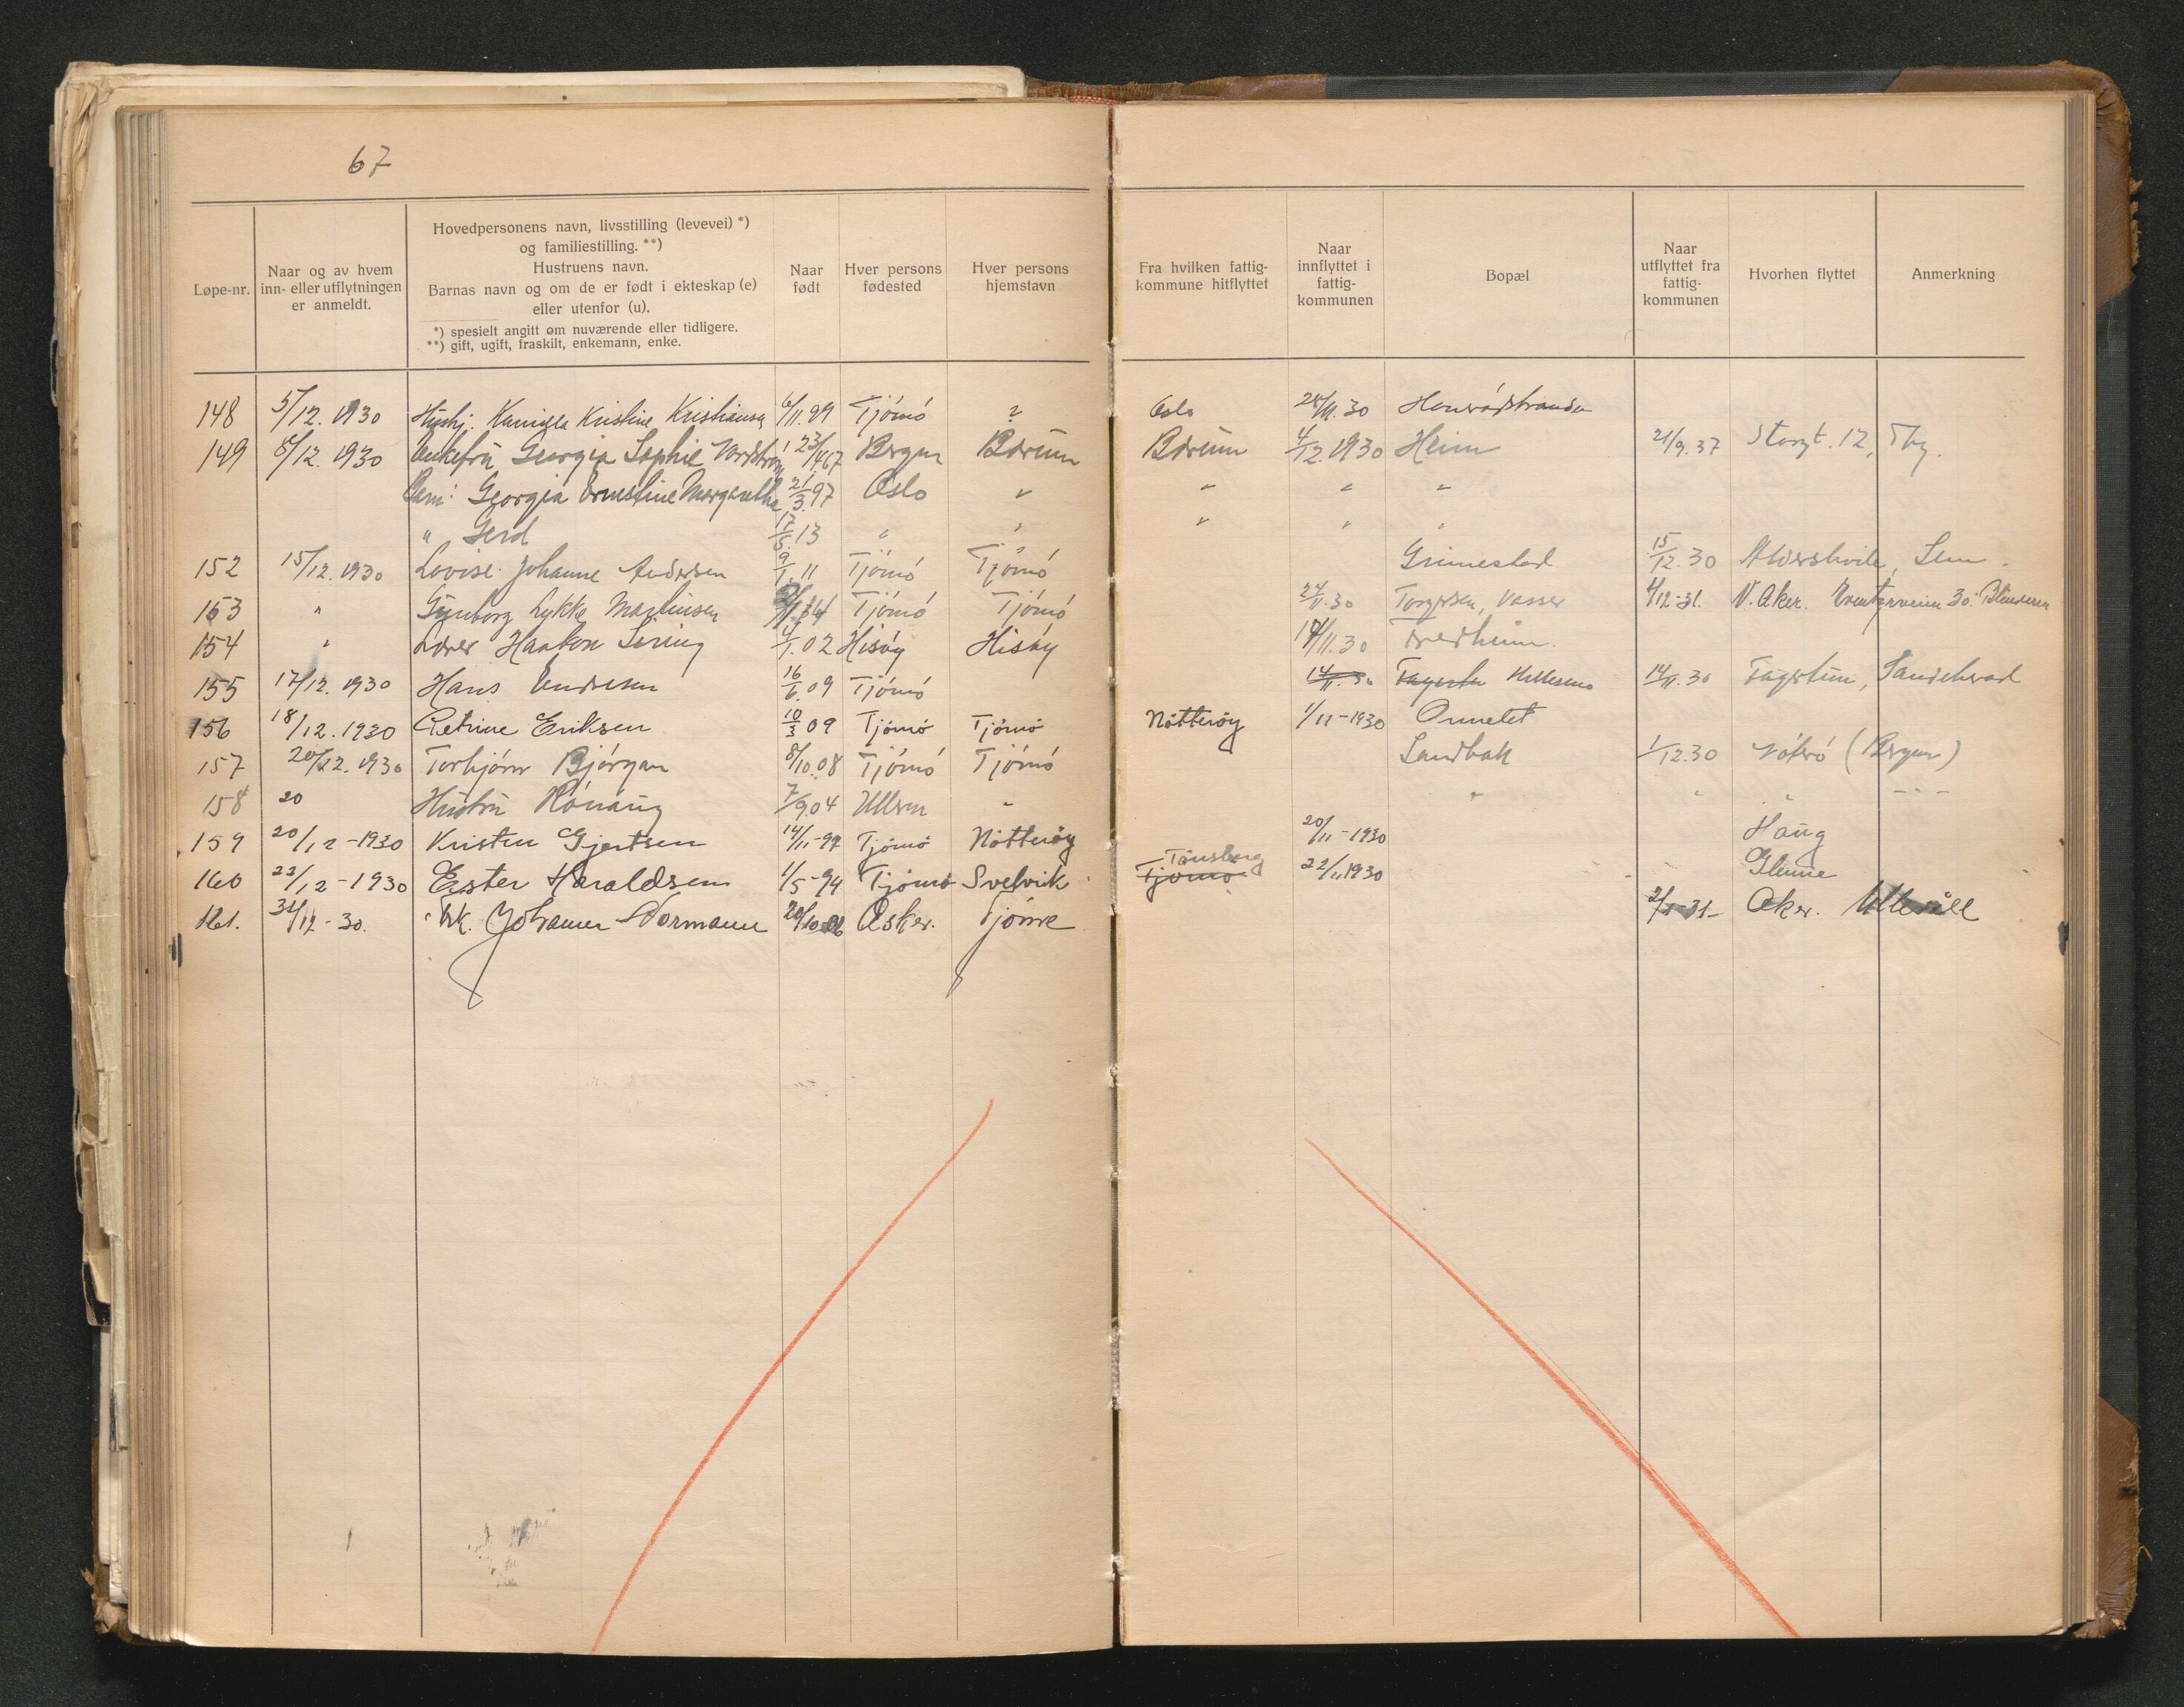 67
Løpe-nr.
Naar og av hvem
inn- eller utflytningen
er anmeldt.
Hovedpersonens navn, livsstilling (levevei) *)
og familiestilling. **)
Hustruens navn.
Barnas navn og om de er født i ekteskap (e)
eller utenfor (u).
*) spesielt angitt om nuværende eller tidligere.
**) gift, ugift, fraskilt, enkemann, enke.
Naar
født
Hver persons
fødested
Hver persons
hjemstavn
Fra hvilken fattig-
kommune hitflyttet
Naar
innflyttet i
fattig-
kommunen
Bopæl
Naar
utflyttet fra
fattig-
kommunen
Hvorhen flyttet
Anmerkning
148 5/12. 1930 Hushj. Kamilla Kristine Kristiansen 6/11.99 Tjømø Oslo 30
149 8/12. 1930 Enkefru Georgia Sophie 23/1 67 Bergen Bærum Bærum 4/12.1930 Heim 21/9.37 Storgt. 12, Tbg.
Georgia Ernestine Margaretha 21/3.97 Oslo " " " "
" Gerd 17/5.13 " " " " "
152 15/12.1930 Lovise Johanne Andersen 9/1.11 Tjømø Tjømø Grimestad 15/12.30 Sem
153 " Gunborg Lykke Martinsen Tjømø Tjømø 24/11.30 Torgersen, Vasser 4/12-31. V. Aker. 30. Blindern
154 " Lærer Haakon 4/1.02 Hisøy Hisøy 14/11.30
155 17/12.1930 Hans Endresen 16/6.09 Tjømø 14/11.30 14/11.30 Fagertun, Sandeherad
156 18/12.1930 Petrine Eriksen 10/3 09 Tjømø Tjømø Nøtterøy 1/11-1930 Ormelet
157 20/12.1930 Torbjørn Bjørgan 8/10.08 Tjømø Tjømø Sandbak 1/12.30 (Bergan)
158 20 Hustru Rønaug 7/9.04 Ullern " " " " - " -
159 20/12-1930 Kristen Gjertsen 14/11-97 Tjømø Nøtterøy 20/11-1930 Haug
160 22/12-1930 Ester Haraldsen 1/5-94 Tjømø Svelvik Tønsberg Tjømø 22/11 1930 Glenne
161. 31/12-30. Johanne Normann 20/10 Asker. Tjøme 2/1-31- Aker. Ullevåll